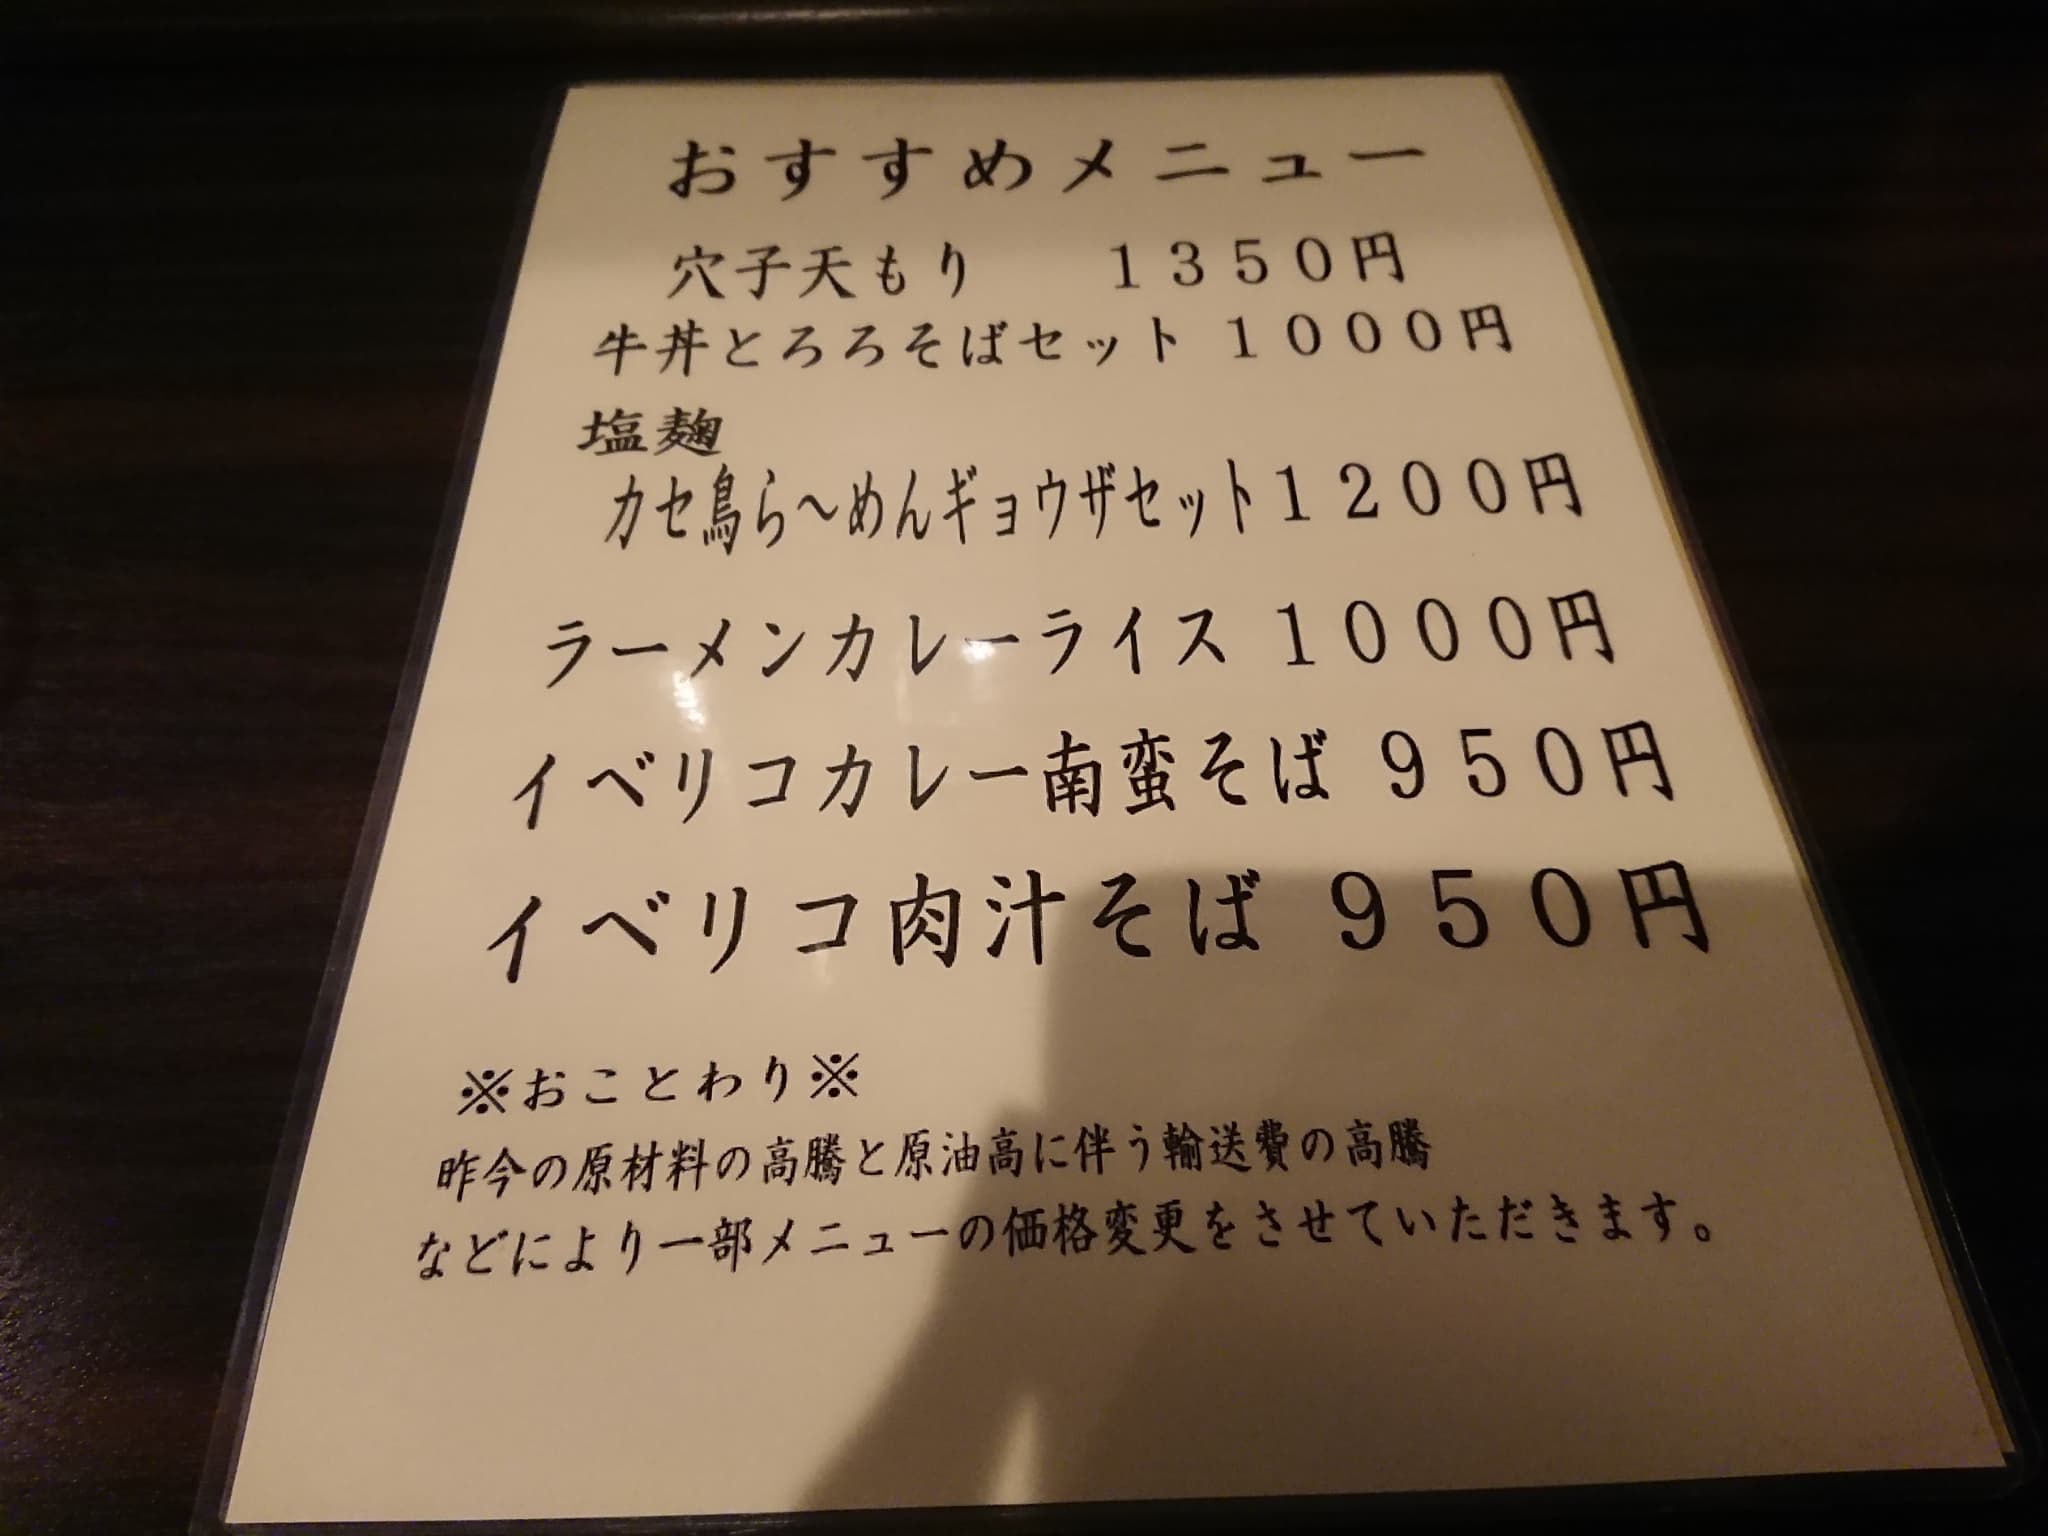 おすすめメニュー
穴子天もり　１３５０円
牛丼とろろそばセット １０００円
塩麹
カセ鳥ら～めんギョウザセット１２００円
ラーメンカレーライス １０００円
イベリコカレー南蛮そば ９５０円
イベリコ肉汁そば ９５０円
※おことわり※
昨今の原材料の高騰と原油高に伴う輸送費の高騰
などにより一部メニューの価格変更をさせていただきます。